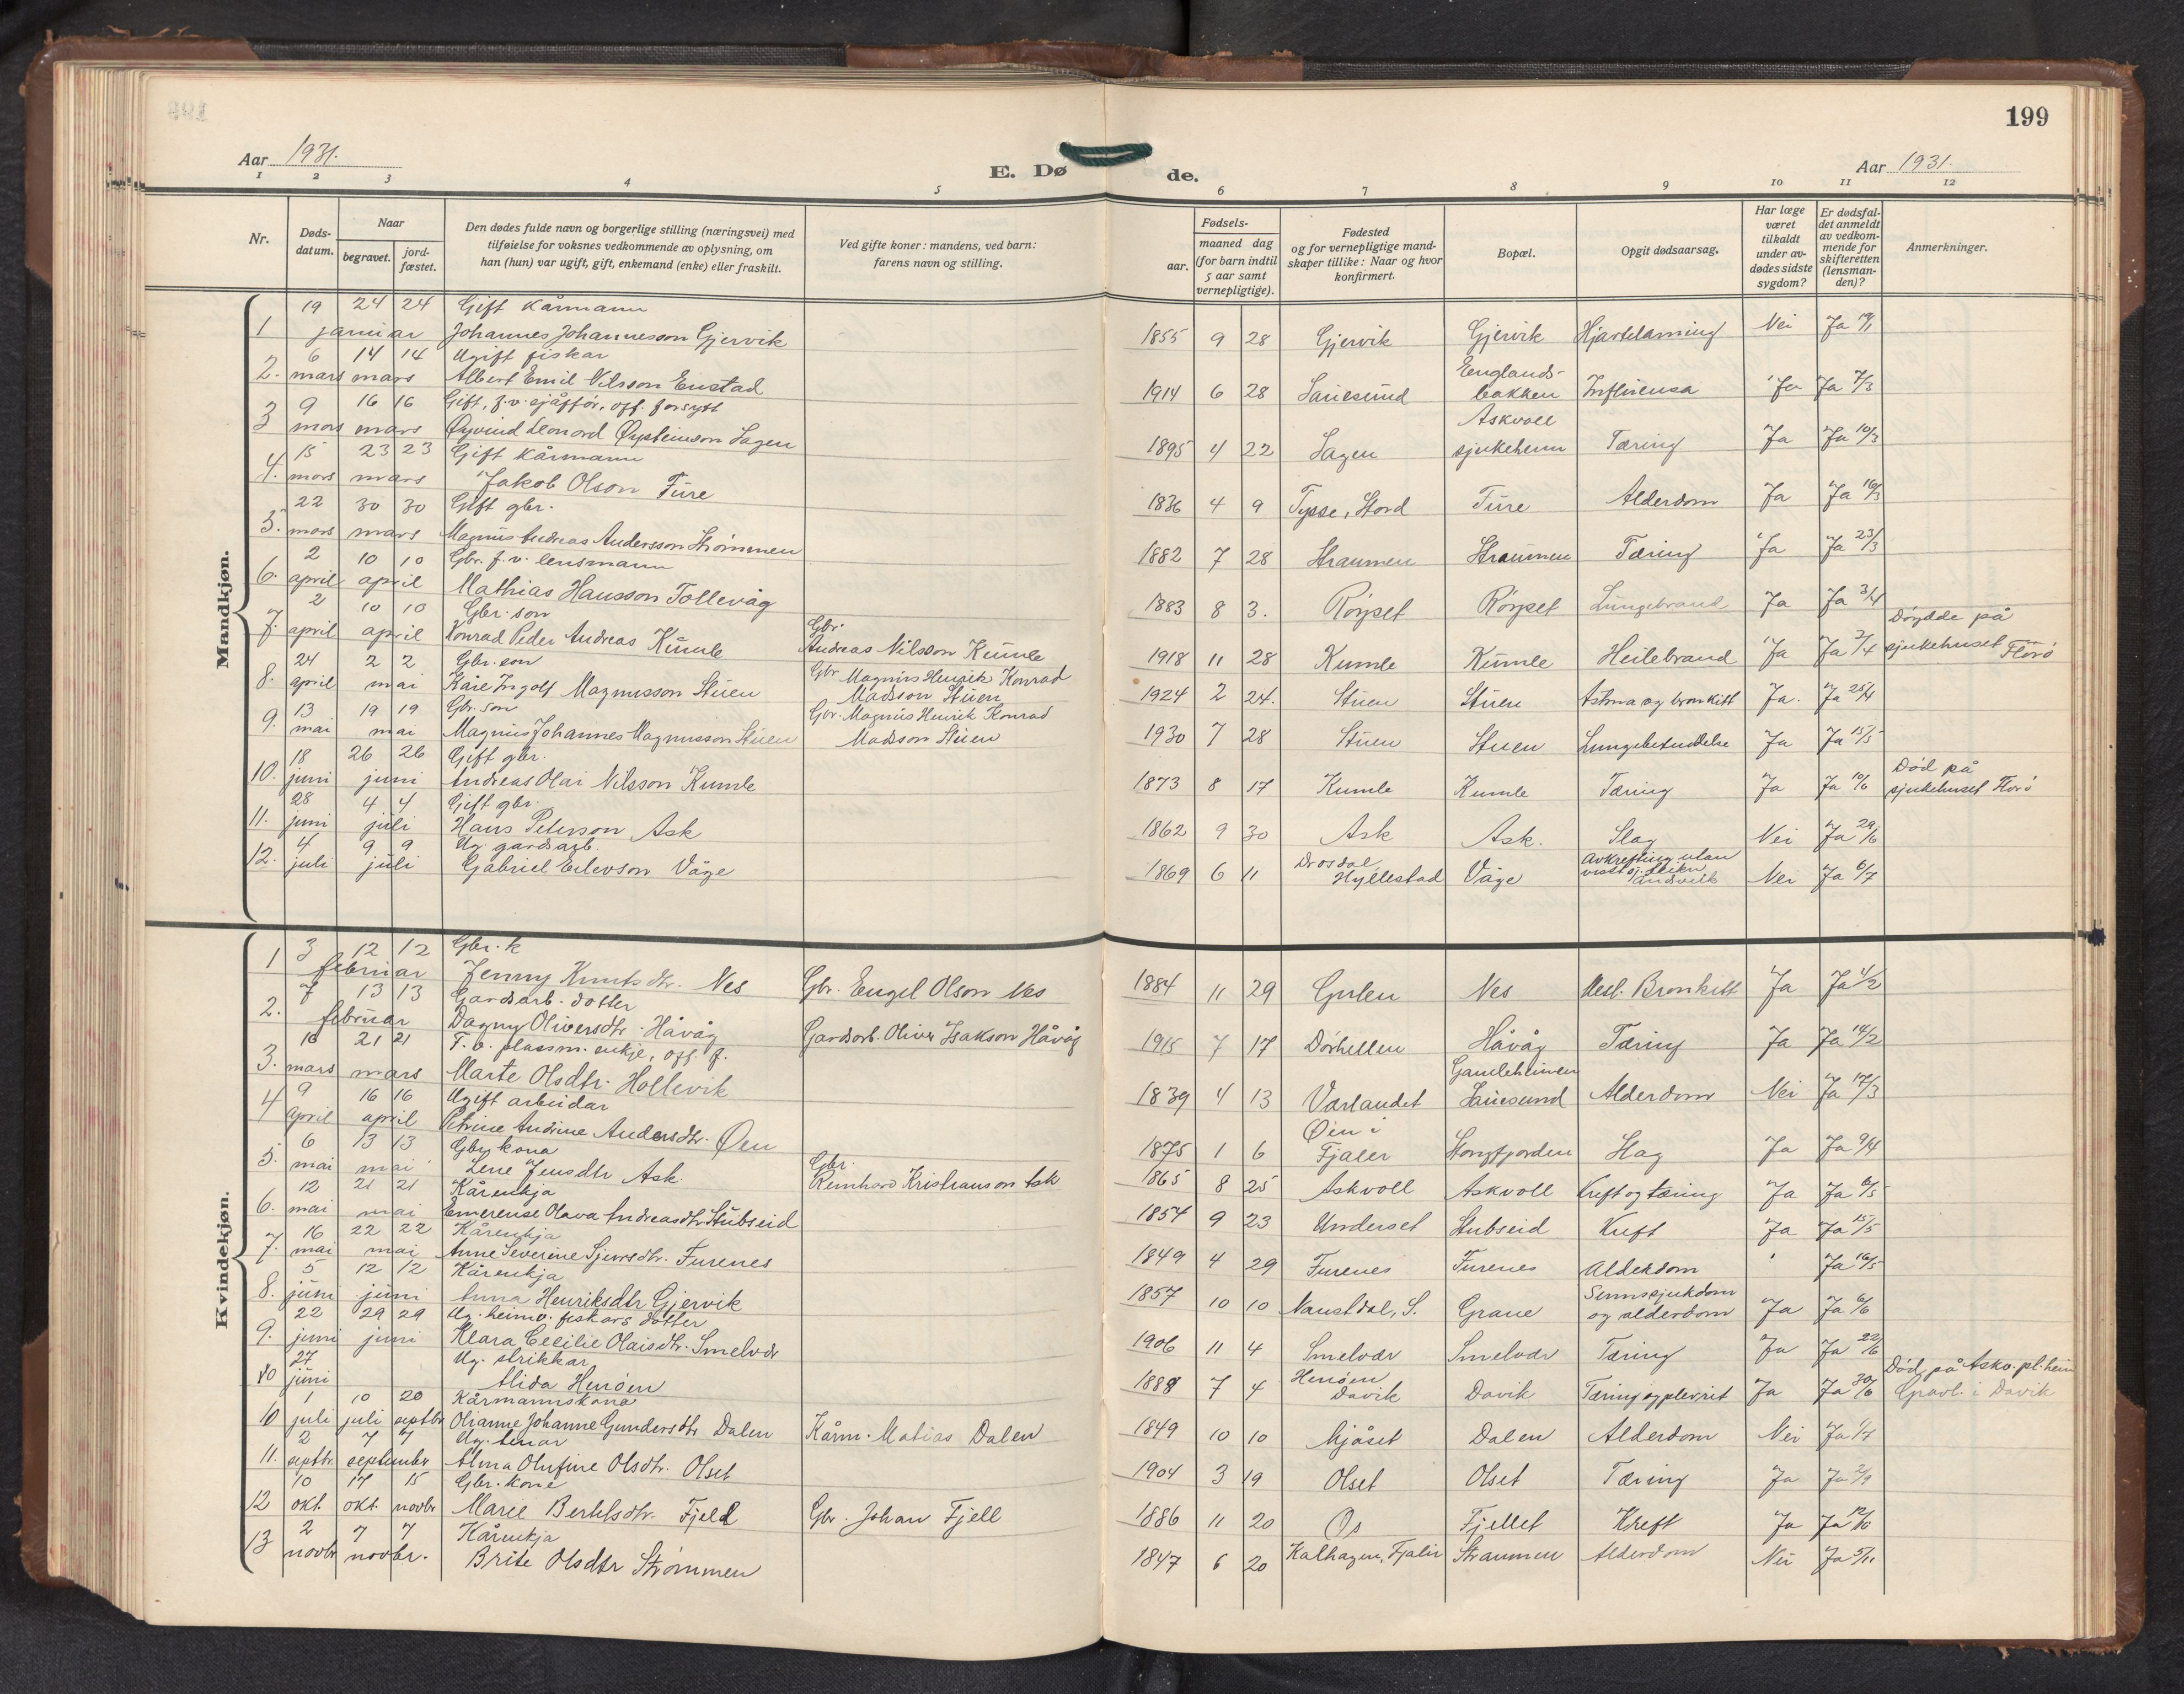 199
Aar 1931.
E. Dø de.
Aar 1931.
1 2 3 4 5 6 7 8 9 10 11 12
Nr.
Døds-datum.
Naar
begravet.
jord-fæstet.
Den dødes fulde navn og borgerlige stilling (næringsvei) med
tilføielse for voksnes vedkommende av oplysning, om
han (hun) var ugift, gift, enkemand (enke) eller fraskilt.
Ved gifte koner: mandens, ved barn:
farens navn og stilling.
Fødsels-
aar.
maaned dag
(for barn indtil
5 aar samt
vernepligtige).
Fødested
og for vernepligtige mand-
skaper tillike: Naar og hvor
konfirmert.
Bopæl.
Opgit dødsaarsag.
Har læge
været
tilkaldt
under av-
dødes sidste
sygdom?
Er dødsfal-
det anmeldt
av vedkom-
mende for
skifteretten
(lensman-
den)?
Anmerkninger.
Mandkjøn.
19 24 24 Gift kårmann
1 januar Johannes Johannesson Gjervik 1855 9 28 Gjervik Gjervik Hjartelamning Nei Ja 19/1
6 14 14 Ugift fiskar
2. mars mars Albert Emil Nilsson Enstad 1914 6 28 Sauesund Englands-bakken Influensa Ja Ja 7/3
9 16 16 Gift, f.v. sjåffør, off. forsytt
3 mars mars Øyvind Leonard Øysteinson Lagen 1895 4 22 Lagen Askvoll sjukeheim Tæring Ja Ja 10/3
15 23 23 Gift kårmann
4. mars mars Jakob Olson Fure 1836 4 9 Tysse, Stord Fure Alderdom Ja Ja 16/3
22 30 30 Gift gbr.
5. mars mars Magnus Andreas Andersson Strømmen 1882 7 28 Straumen Straumen Tæring Ja Ja 23/3
2 10 10 Gbr. f.v. lensmann
6. april april Mathias Hansson Tollevåg 1883 8 3. Røyset Røyset Lungebrand Ja Ja 3/4
2 10 10 Gbr. son
7. april april Konrad Peder Andreas Kumle Gbr. Andreas Nilsson Kumle 1918 11 28 Kumle Kumle Heilebrand Ja Ja 7/4 Døydde på sjukehuset i Florø
24 2 2 Gbr. son
8. april mai Kåre Ingolf Magnusson Stuen Gbr. Magnus Henrik Konrad Madsson Stuen 1924 2 24. Stuen Stuen Astma og bronkitt Ja. Ja 25/4
13 19 19 Gbr. son
9. mai mai Magnus Johannes Magnusson Stuen Gbr. Magnus Henrik Konrad Madsson Stuen 1930 7 28 Stuen Stuen Lungebetendelse Ja Ja 15/5
18 26 26 Gift gbr.
10. juni juni Andreas Olai Nilsson Kumle 1873 8 17 Kumle Kumle Tæring Ja Ja Død på sjukehuset Florø
28 4 4 Gift gbr.
11. juni juli Hans Peterson Ask 1862 9 30 Ask Ask. Slag Nei Ja 29/6
4 9 9 Ug. gardsarb.
12. juli juli Gabriel Eilevson Våge 1869 6 11 Drosdal Hyllestad Våge Avkrefting utan Nei Ja 6/7
Kvindekjøn.
3 12 12 Gbr. k
1 februar Jenny Knutsdtr. Nes Gbr. Engel Olson Nes 1884 11 29 Gulen Nes Mesl. Bronkitt Ja Ja 4/2
7 13 13 Gardsarb. dotter
2. februar Dagny Oliversdtr. Håvåg Gardsarb. Oliver Isakson Håvåg 1915 7 17 Dørhellen Håvåg Tæring Ja Ja 14/2
16 21 21 F.v. plassm. enkje, off. f.
3. mars mars Marte Olsdtr. Hollevik 1839 4 13 Værlandet Gamleheimen Sauesund Alderdom Nei Ja 17/3
9 16 16 Ugift arbeidar
4 april april Petrine Andrine Andersdtr. Øen 1875 1 6 Øen i Fjaler Stongfjorden Slag Ja Ja 9/4
6 13 13 Gbr kona
5. mai mai Lene Jensdtr Ask. Gbr. Reinhard Kristianson Ask 1865 8 25 Askvoll Askvoll Kreft og tæring Ja Ja 6/5
12 21 21 Kårenkja
6. mai mai Emerense Olava Andreasdtr Stubseid 1857 9 23 Underset Stubseid Kreft Ja Ja 15/5
16 22 22 Kårenkja
7. mai mai Anne Severine Sjursdtr. Furenes 1849 4 29 Furenes Furenes Alderdom Ja 16/5
5 12 12 Kårenkja
8. juni juni Anna Henriksdtr Gjervik 1857 10 10 Naustdal, S. Grane Sinnssjukdom og alderdom Ja Ja 6/6
22 29 29 Ug. heimv. fiskars dotter
9. juni juni Klara Cecilie Olaisdtr. Smelvær 1906 11 4 Smelvær Smelvær Tæring Ja Ja 22/6
27 Ug. strikkar
10 juni Alida Henøen 1888 7 4 Henøen Davik Davik Tæring og plevrit Ja Ja 30/6 Død på Askv. pl. heim Gravl. i Davik
1 10 20 Kårmannskona
10 juli juli septbr Olianne Johanne Gundersdtr Dalen Kårm. Matias Dalen 1849 10 10 Mjåset Dalen Alderdom Nei Ja 1/7
2 7 7 Ug. tenar
11. septbr. september Alma Olufine Olsdtr. Olset 1904 3 19 Olset Olset Tæring Ja Ja 2/9
10 17 15 Gbr. kone
12 okt. okt. novbr Marie Bertelsdtr. Fjell Gbr. Johan Fjell 1886 11 20 Os Fjellet Kreft Ja Ja 12/10
2 7 7 Kårenkja
13 novbr novbr. Brite Olsdtr Strømmen 1847 6 20 Kalhagen, Fjaler Straumen Alderdom Nei Ja 5/11